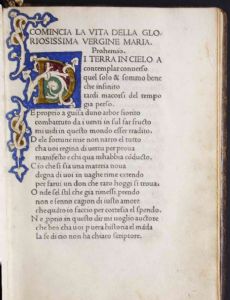 COMINCIA LA VITA DELLA GLO
RIOSISSIMA VERGINE MARIA.
Prohemio.
I TERRA IN CIELO A
contemplar conuerso
quel solo & sommo bene
che infinito
tardi macossi del tempo
gia perso.
E proprio a guisa duno arbore fiorito
combattuto da uenti in sul far fructo
mi uidi in questo mondo esser tradito.
D ele fortune mie non narro el tutto
cha uoi regina di uertu per proua
manifesto e chi qua mhabbia cõducto.
C io che si sia una materia noua
degna di uoi in uaghe rime extendo
per farui un don che raro hoggi si troua.
O nde se il stil che gia rimesi prendo
non e senno cagion di iusto amore
che quatro faccio per cortesia el spendo.
N e prio in questo dir mi uoglio auctore
che ben cha uoi para historia el mãda
la fe di cio non ha chiaro scriptore.